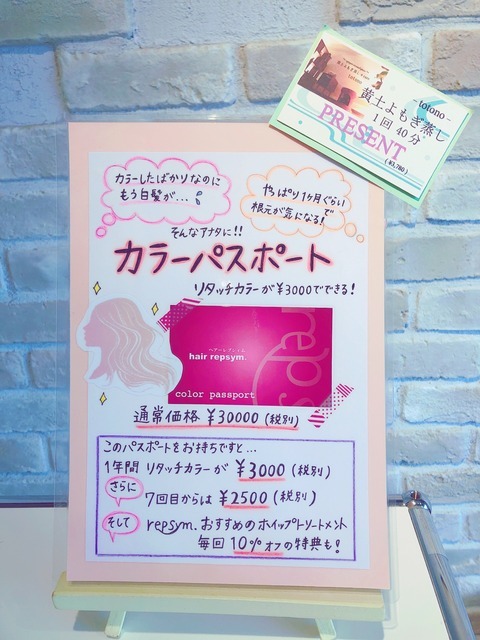 -totono-
黄土よもぎ蒸し
1回 40分
PRESENT
(¥3,780)
カラーしたばかりなのに
もう白髪が...
やっぱり1ヶ月ぐらいで
根元が気になる!
そんなアナタに!!
カラーパスポート
リタッチカラーが¥3000でできる!
ヘアーレプシム
hair repsym.
reps
color passport
通常価格 ¥30000 (税別)
このパスポートをお持ちですと...
1年間 リタッチカラーが ¥3000 (税別)
さらに
7回目からは ¥2500 (税別)
そして
repsym.おすすめのホイップトリートメント
毎回 10%オフの特典も!